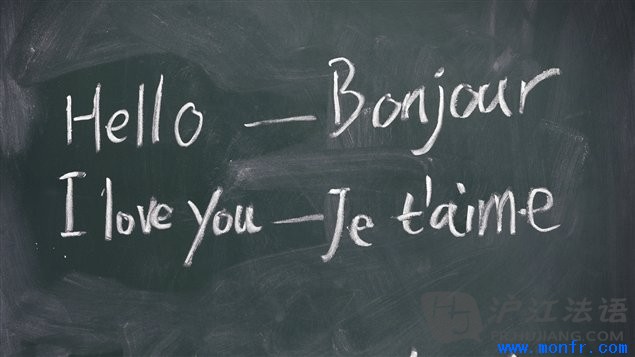 Hello — Bonjour
I love you — Je t'aime
沪江法语
HUJIANG.COM
www.monfr.com